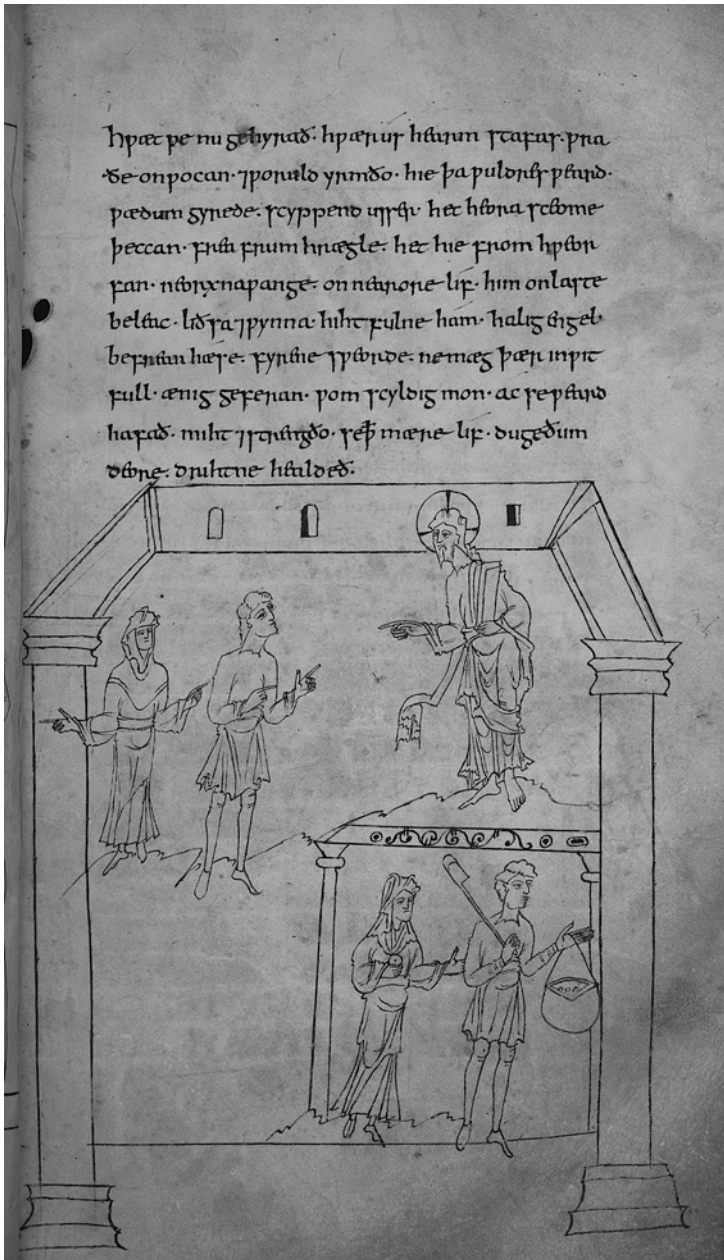 hƿæt ƿe nu gehyrað· hƿær us hearm stafas· ƿra
ðe onƿocan· ⁊ƿoruld yrmðo· hie þa ƿuldres ƿeard·
ƿædum gyrede· scyppend usser· het heora sceome
þeccan· frea frum hrægle· het hie from hƿeor
fan· neorxnaƿange· on nearore lif· him onlaste
beleac· liðsa ⁊ƿynna· hiht fulne ham· halig engel·
be frean hæse· fyrene sƿeorde· nemæg þær inƿit
full· ænig geferan· ƿom scyldig mon· ac se ƿeard
hafað· miht ⁊strengðo· se þ̄ mære lif· dugeðum
deore· drihtne healdeð·